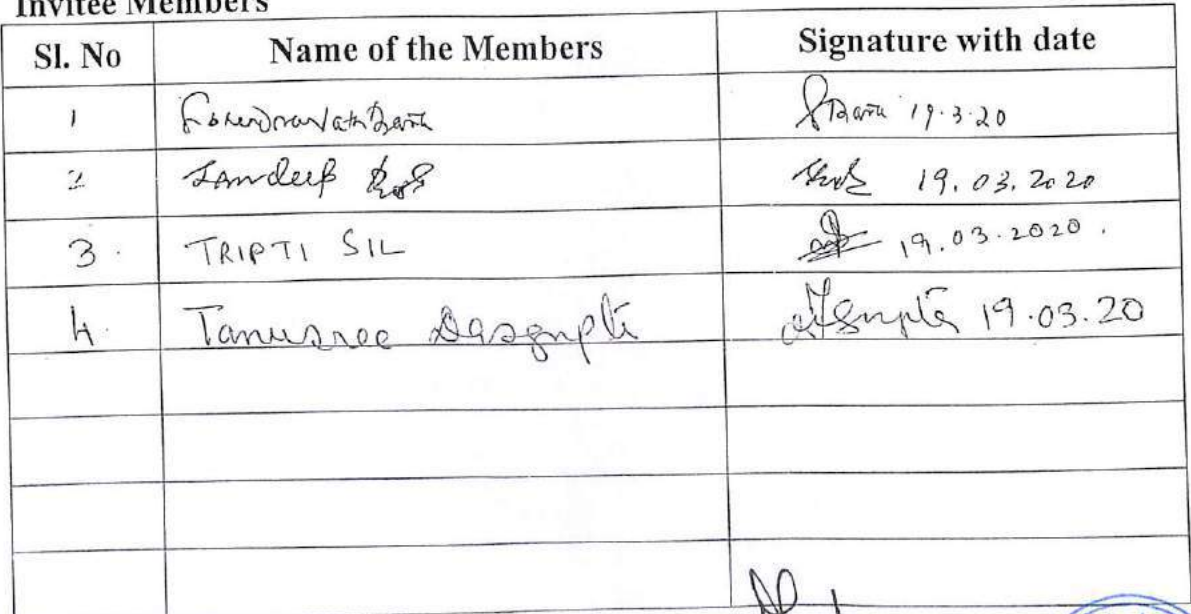 Invitee Members
Sl. No Name of the Members Signature with date
1 19.3.20
2 Sandeep 19.03.2020
3. TRIPTI SIL 19.03.2020.
4. Tanusree Dasgupta 19.03.20